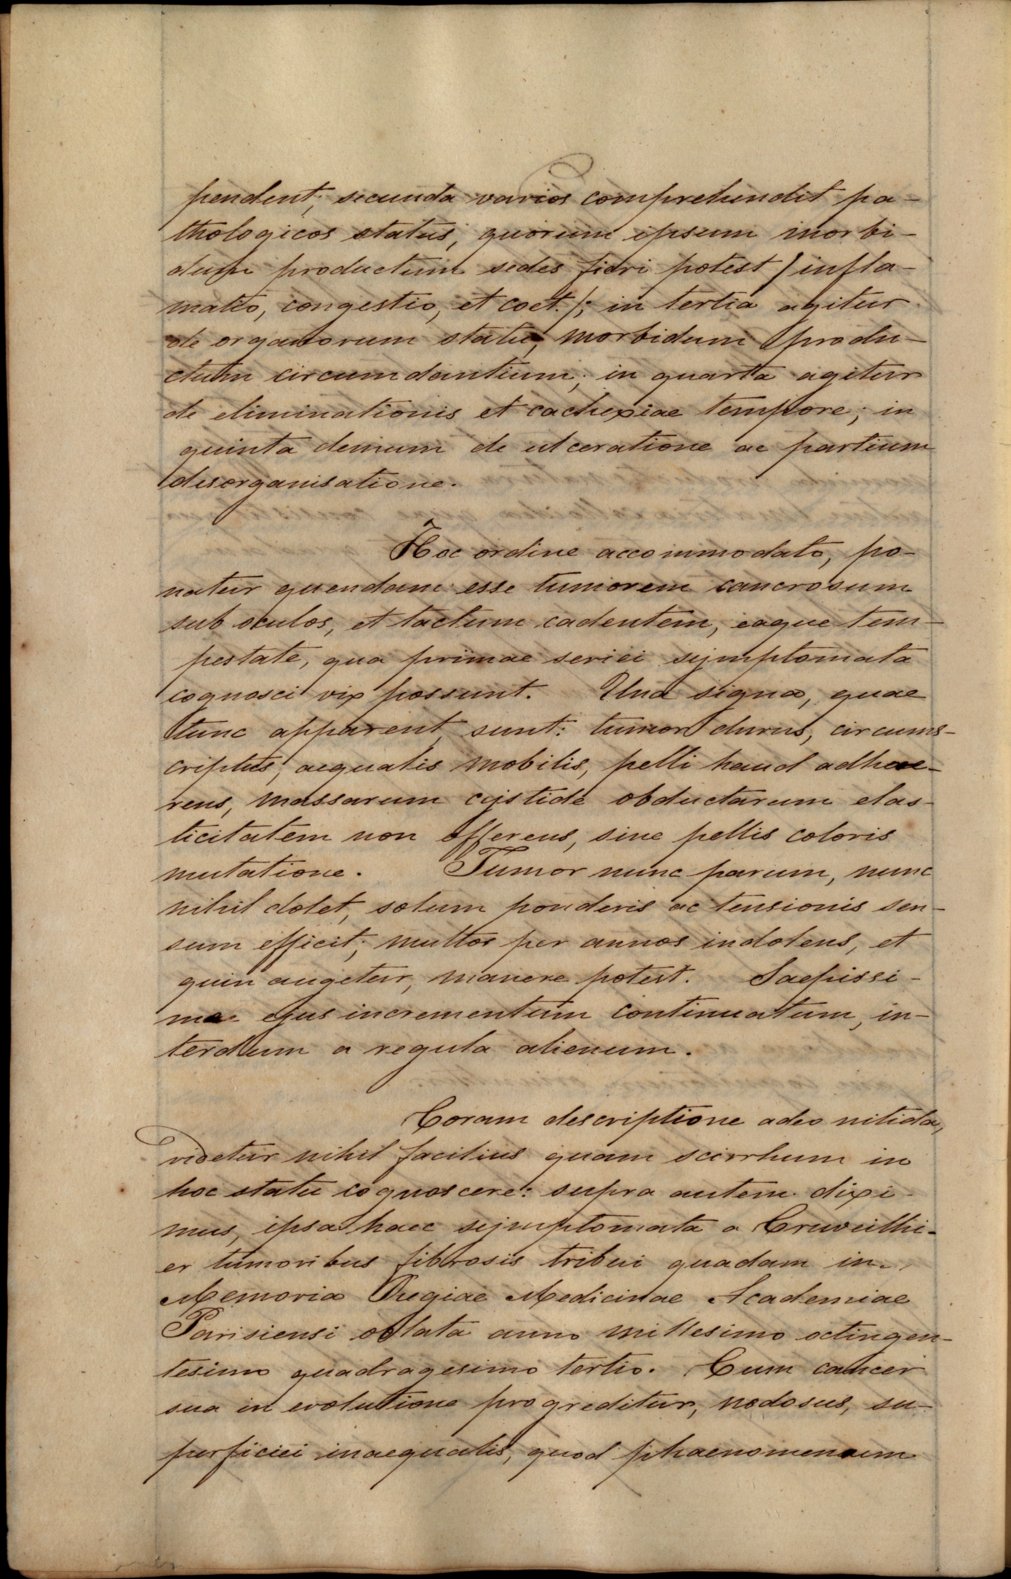 pendent; secunda varios comprehendit pa-
thologicos status, quorum ipsum morbi-
dum productum sedes fieri potest /infla-
matio, congestio, et coet./; in tertia agitur
de organorum statu, morbidum produ-
ctum circumdantium; in quarta agitur
de eliminationis et cachexiae tempore; in
quinta demum de ulceratione ac partium
disorganisatione.
Hoc ordine accommodato, po-
natur quendam esse tumorem cancrosum
sub oculos, et tactum cadentem, eaque tem-
pestate, qua primae seriei symptomata
cognosci vix possunt. Una signa, quae
tunc apparent, sunt: tumor durus, circums-
criptus, aequalis mobilis, pelli haud adhae-
rens, massarum cystide obductarum elas-
ticitatem non offerens, sine pellis coloris
mutatione. Tumor nunc parum, nunc
nihil dolet, solum ponderis ac tensionis sen-
sum efficit; multos per annos indolens, et
quin augetur, manere potest. Saepissi-
me ejus incrementum continuatum, in-
terdum a regula alienum.
Coram descriptione adeo nitida,
videtur nihil facilius quam scirrhum in
hoc statu cognoscere: supra autem dixi-
mus, ipsa haec symptomata a Cruveilhi-
er tumoribus fibrosis tribui quadam in
Memoria Regiae Medicinae Academiae
Parisiensi oblata anno millesimo octingen-
tesimo quadragesimo tertio. Cum cancer
sua in evolutione progreditur, nodosus, su-
perficiei inaequalis, quod phaenomenum